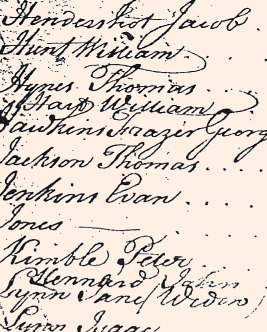 Hendershot Jacob .
Hunt William .
Hynes Thomas . . .
Hart William
Hawkins Frazer Georg
Jackson Thomas . . . .
Jenkins Evan . . . .
Jones
Kimble Peter
Kennard John
Lynn Jane (Widow)
Lynn Isaac